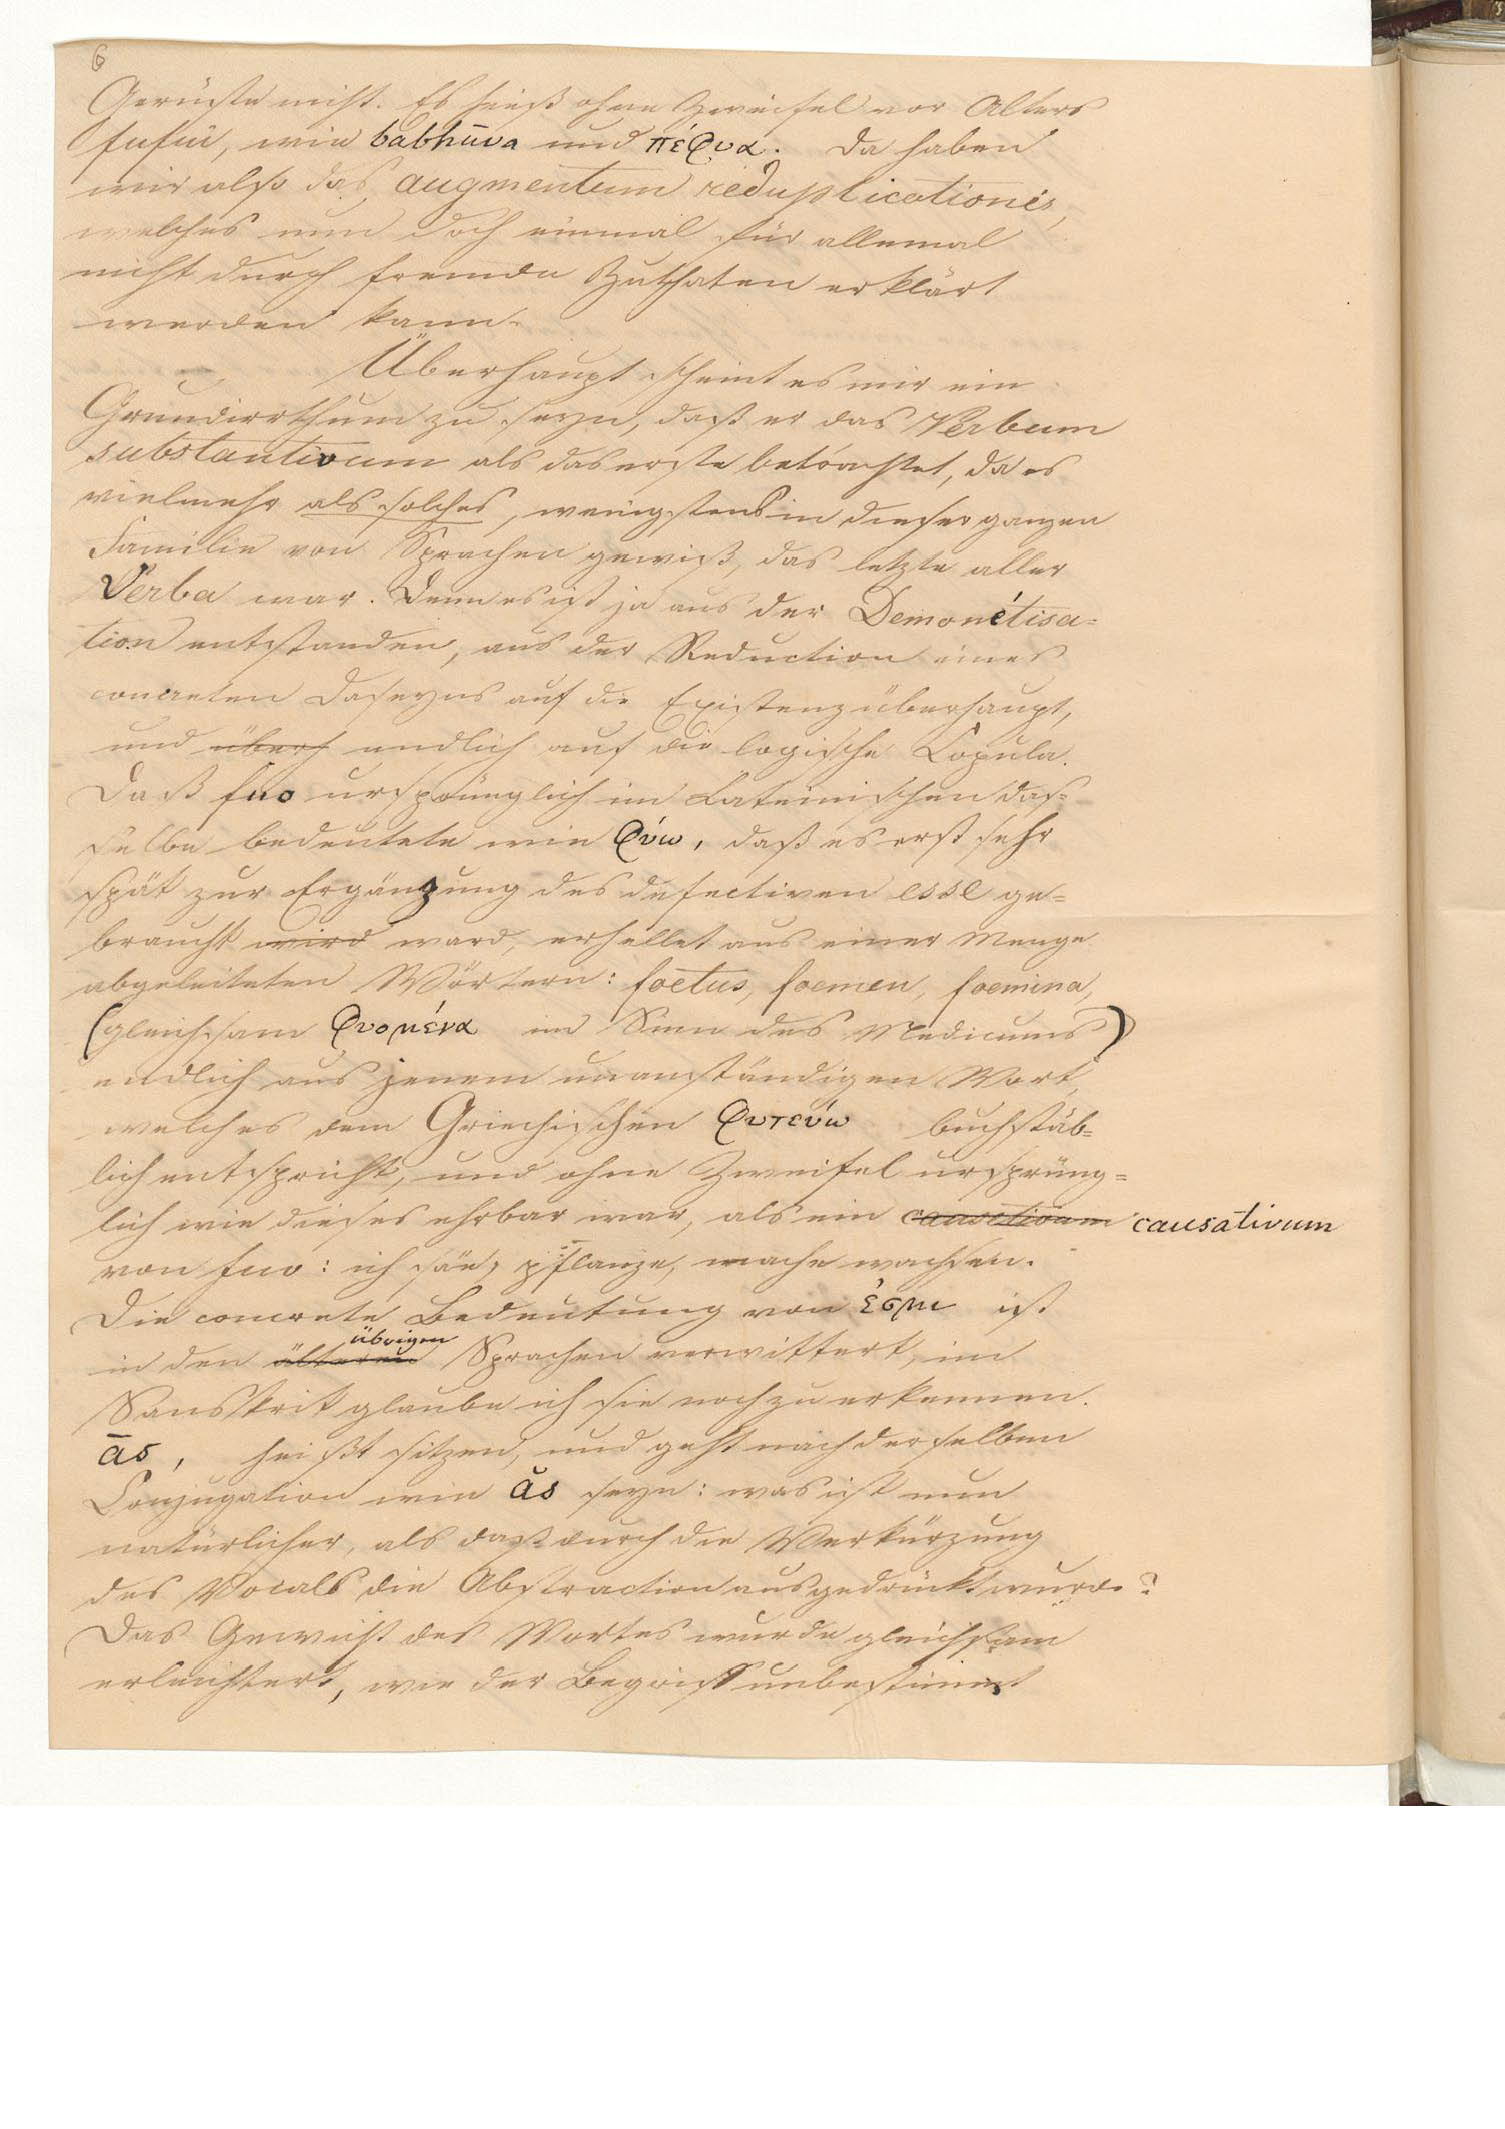 6
Gerüste nicht. Es hieß ohne Zweifel vor Alters
fufui, wie babhūva und πέφυα. Da haben
wir also das augmentum reduplicationis,
welches nun doch einmal für allemal
nicht durch fremde Zuthaten erklärt
werden kann.
Überhaupt scheint es mir ein
Grundirrthum zu seyn, daß er das Verbum
substantivum als das erste betrachtet, da es
vielmehr als solches, wenigstens in dieser ganzen
Familie von Sprachen gewiß, das letzte aller
Verba war. Denn es ist ja aus der Demonétisa-
tion entstanden, aus der Reduction eines
concreten Daseyns auf die Existenz überhaupt,
und überh endlich auf die logische Copula.
Daß fuo ursprünglich im Lateinischen das-
selbe bedeutete wie φύω, daß es erst sehr
spät zur Ergänzung des defectiven esse ge-
braucht wird ward, erhellet aus einer Menge
abgeleiteten Wörtern: foetus, foemen, foemina,
(gleichsam φυομένα im Sinn des Mediums)
endlich aus jenem unanständigen Wort,
welches dem Griechischen φυτεύω buchstäb-
lich entspricht, und ohne Zweifel ursprüng-
lich wie dieses ehrbar war, als ein causativum causativum
von fuo: ich säe, pflanze, mache wachsen.
Die concrete Bedeutung von ἐσμι ist
in den älteren übrigen Sprachen verwittert, im
Sanskrit glaube ich sie noch zu erkennen.
ās, heißt sitzen, und geht nach derselben
Conjugation wie ăs seyn: was ist nun
natürlicher, als daß durch die Verkürzung
des Vocals die Abstraction ausgedrückt wurde?
Das Gewicht des Wortes wurde gleichsam
erleichtert, wie der Begriff unbestimmt